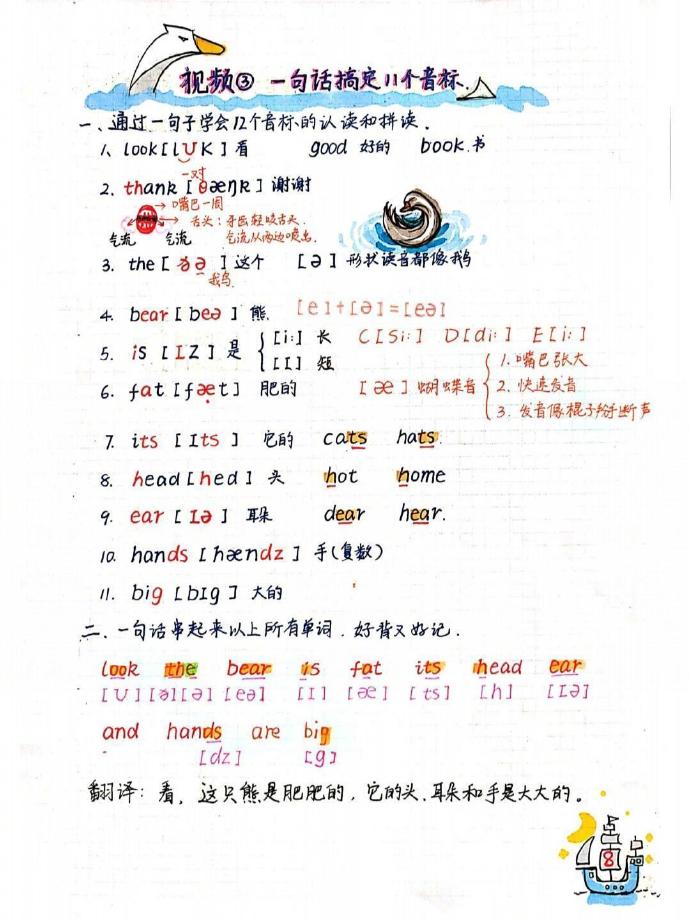 视频③ 一句话搞定11个音标.
一、通过一句子学会12个音标的认读和拼读.
1、look[lʊK]看 good 好的 book.书
一对
2. thank [θæŋk]谢谢
嘴巴一周
舌头:牙齿轻咬舌头.
气流 气流 气流从两边喷出.
3. the[ðə]这个 [ə]形状读音都像我鸟
我鸟
4. bear[beə]熊. [e]+[ə]=[eə]
5. is [ɪZ]是 [i:]长 C[Si:] D[di:] E[i:]
[ɪ]短
1.嘴巴张大
6. fat[fæt]肥的 [æ]蝴蝶音 2.快速发音
3.发音像棍子掰断声
7. its [ɪts]它的 cats hats.
8. head[hed]头 hot home
9. ear[ɪə]耳朵 dear hear.
10. hands [hændz]手(复数)
11. big[bɪg]大的
二.一句话串起来以上所有单词.好背又好记.
look the bear is fat its head ear
[ʊ][ə][ə][eə] [ɪ] [æ] [ts] [h] [ɪə]
and hands are big
[dz] [g]
翻译:看,这只熊是肥肥的,它的头.耳朵和手是大大的。
8